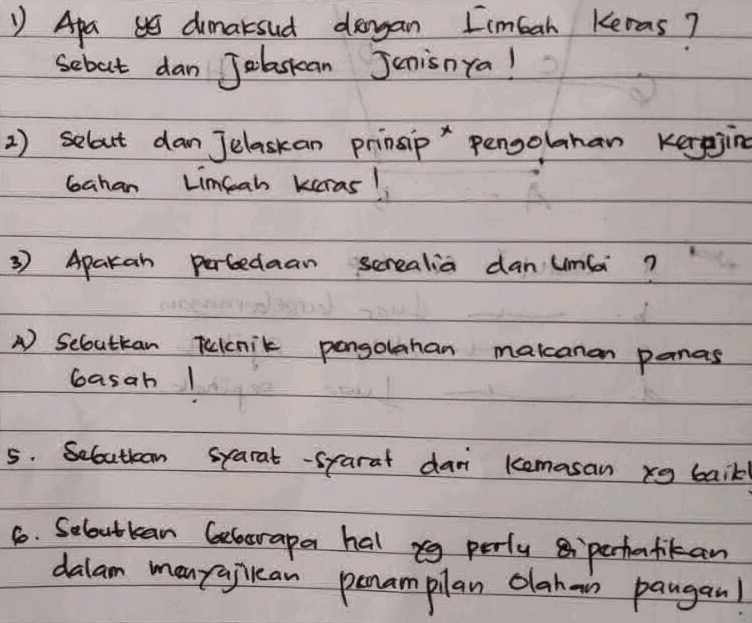 1) Apa yg dimaksud dengan Limbah Keras ?
Sebut dan Jelaskan Jenisnya !
2) Sebut dan Jelaskan prinsip * pengolahan Kerajin
bahan Limbah keras !
3) Apakah perbedaan serealia dan Umbi ?
4) Sebutkan Teknik pengolahan makanan panas
basah !
5. Sebutkan syarat-syarat dari Kemasan yg baik!
6. Sebutkan beberapa hal yg perlu diperhatikan
dalam menyajikan penampilan Olahan pangan!